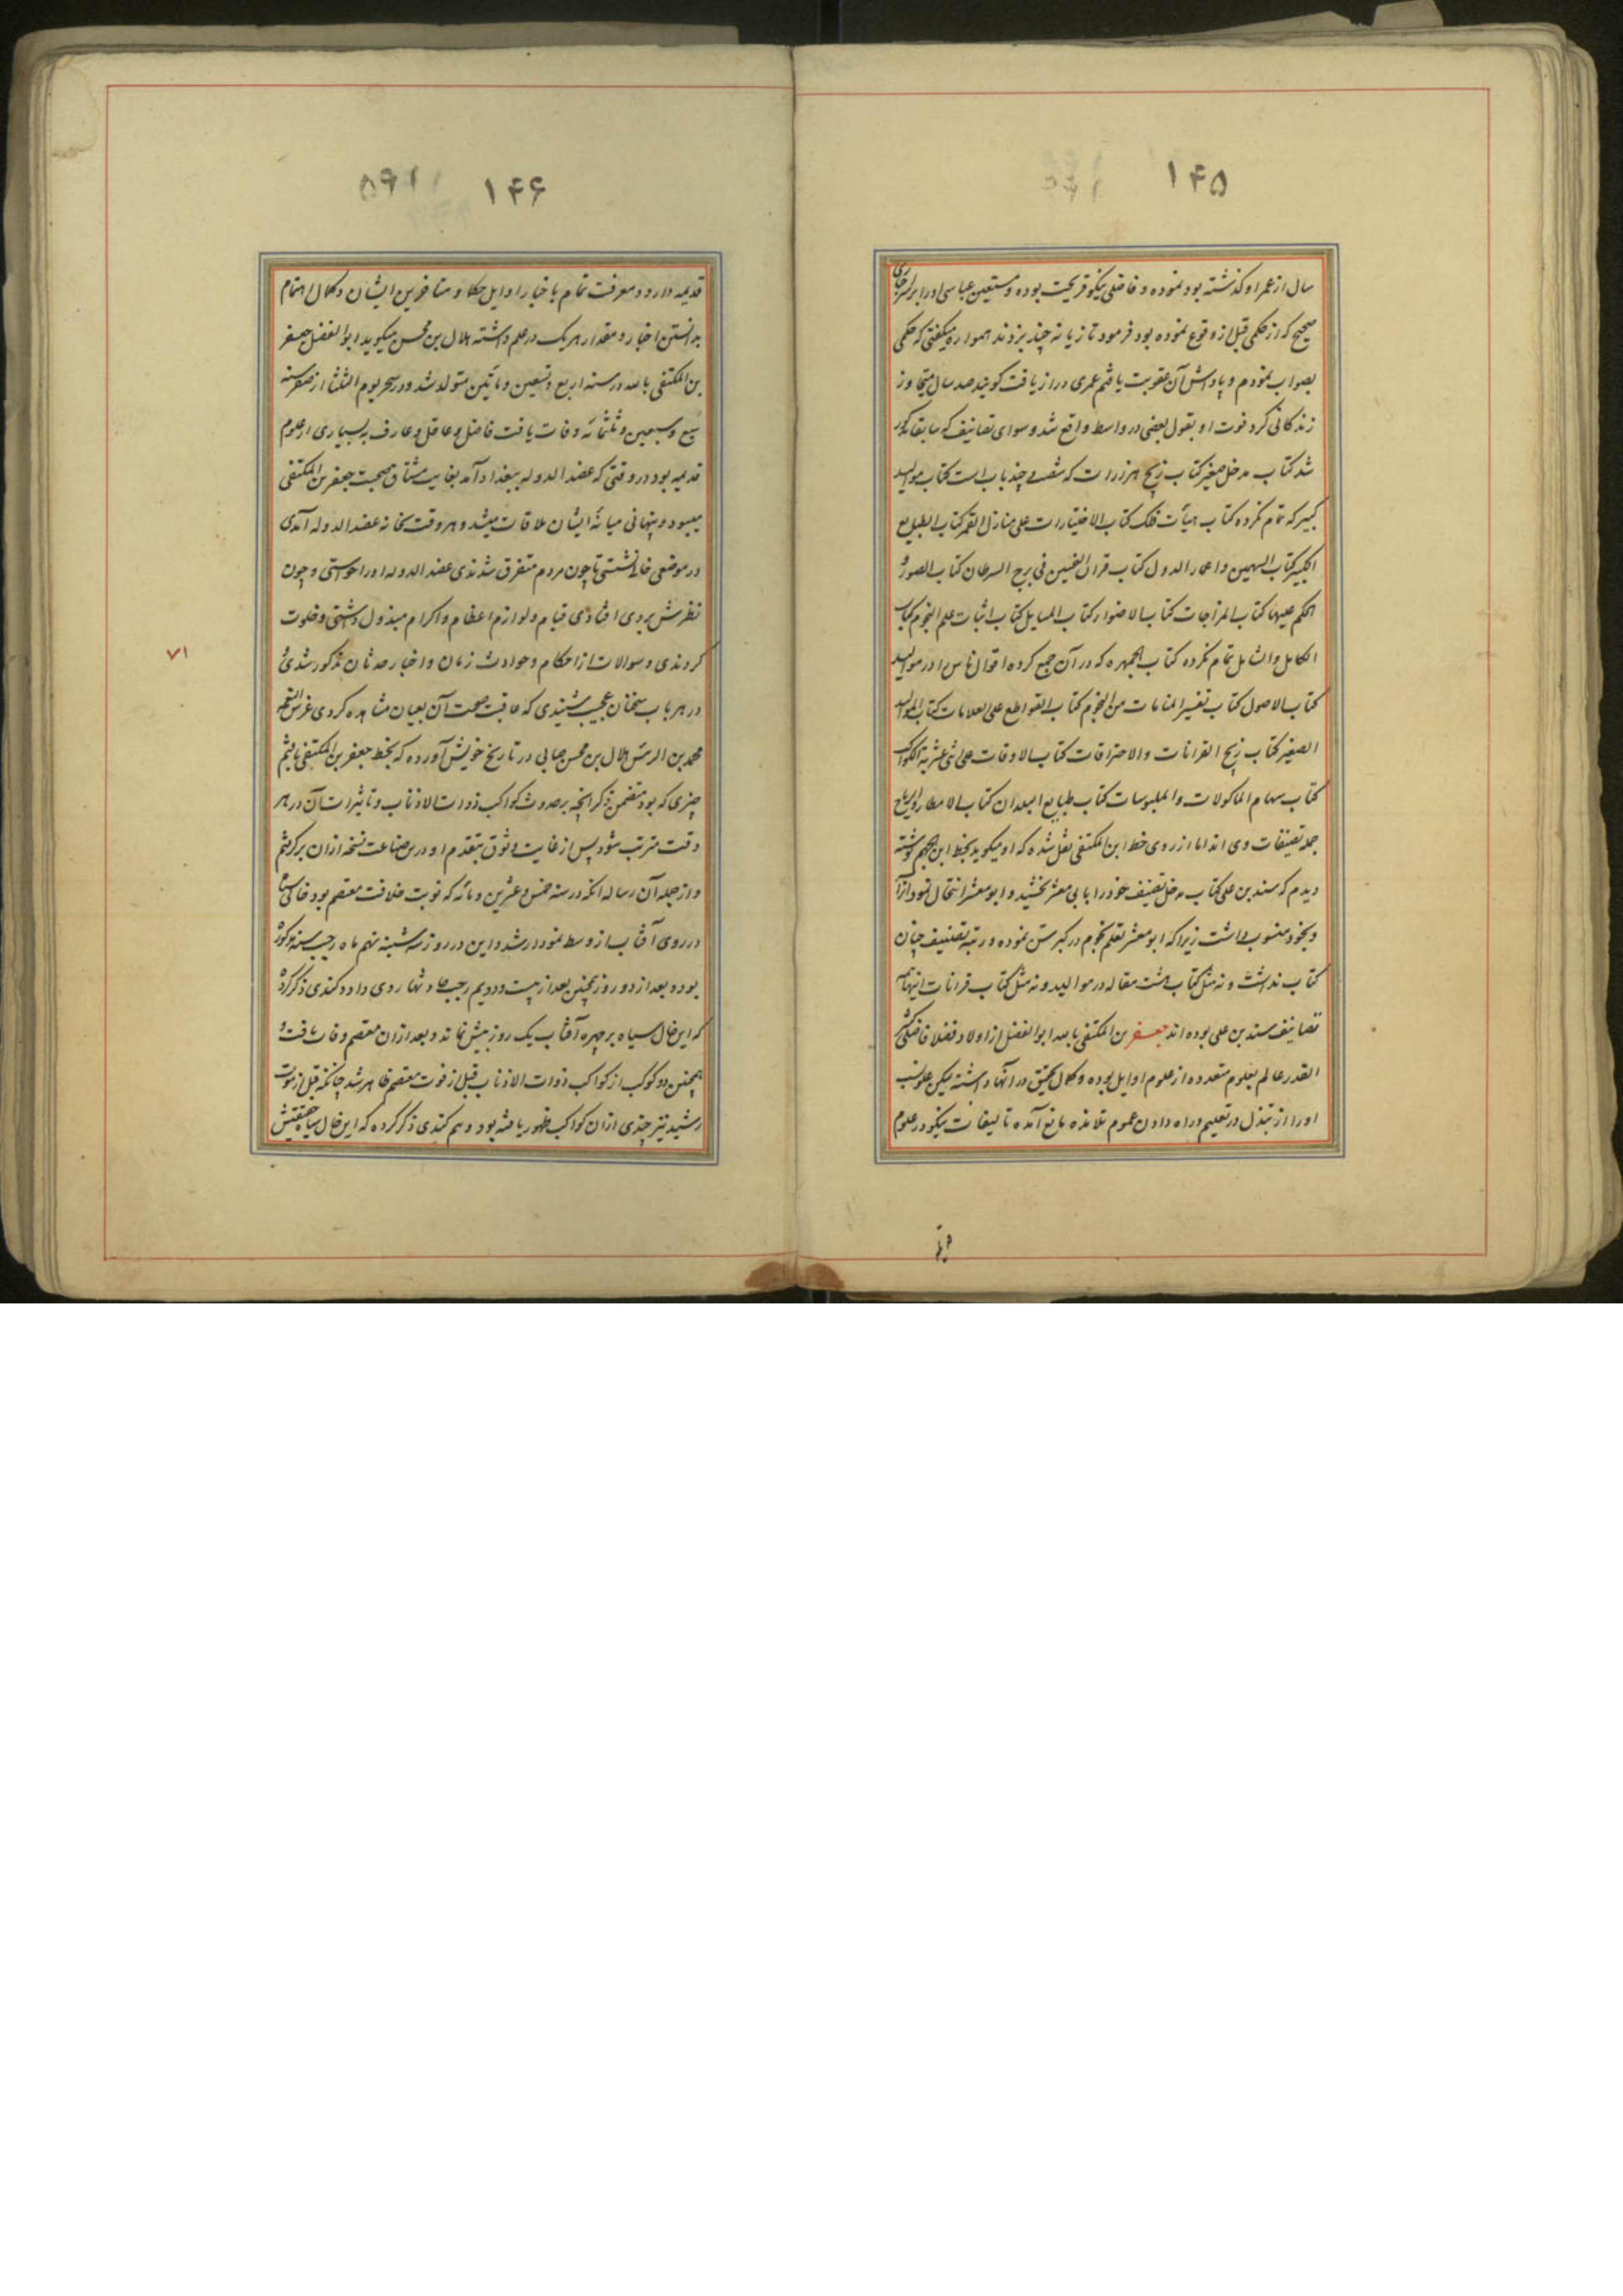 ۱۴۵
سال از عمر او گذشته بود نموده و فاضلی نیکو قریحت بوده و مستعین عباسی او را برای
صحیح که از حکمی قبل از وقوع نموده بود فرمود تازیانه چند بزدند همواره میگفتی که حکمی
بصواب نمودم و پاداش آن عقوبت یافتم عمری دراز یافت گویند صد سال متجاوز
زندگانی کرد فوت او بقول بعضی در واسط واقع شد و سوای تصانیف که سابقا مذکور
شد کتاب مدخل صغیر کتاب زیج هزارات که شصت و چند باب است کتاب موالید
کبیر که تمام نکرده کتاب هیأت فلک کتاب الاختیارات علی منازل القمر کتاب الطبایع
الکبیر کتاب السهمین و اعمار الدول کتاب قران النحسین فی برج السرطان کتاب الصور و
الحکم علیها کتاب المزاجات کتاب الانواء کتاب المسایل کتاب اثبات علم النجوم کتاب
الکامل و الشامل تمام نکرده کتاب الجمهره که در آن جمع کرده اقوال ناس را در موالید
کتاب الاصول کتاب تفسیر المنامات من النجوم کتاب القواطع علی العلامات کتاب الموالید
الصغیر کتاب زیج القرانات والاحتراقات کتاب الاوقات علی اثنی عشریة الکواکب
کتاب سهام الماکولات والملبوسات کتاب طبایع البلدان کتاب الامطار والریاح
جمله تصنیفات وی اند اما از روی خط ابن المکتفی نقل شده که او میگوید بخط ابن الجهم نوشته
دیدم که سند بن علی کتاب مدخل تصنیف خود را بابی معشر بخشید و ابومعشر انتحال نمود آنرا
و بخود منسوب داشت زیرا که ابومعشر تعلم نجوم در کبر سن نموده و رتبه تصنیف چنان
کتاب نداشت و نه مثل کتاب هشت مقاله در موالید و نه مثل کتاب قرانات اینهمه
تصانیف سند بن علی بوده اند جعفر بن المکتفی بالله ابوالفضل از اولاد خلفا فاضلی
القدر عالم بعلوم متعدده از علوم اوایل بوده و کمال تحقیق در آنها داشته لیکن علو نسب
او را از تبذل در تعلیم و راه دادن عموم تلامذه مانع آمده تالیفات نیکو در علوم
۱۴۶
قدیمه دارد و معرفت تمام باخبار اوایل حکما و متاخرین ایشان و کمال اهتمام
بدانستن اخبار و مقدار هر یک در علم داشته هلال بن محسن میگوید ابوالفضل جعفر
بن المکتفی بالله در سنه اربع و تسعین و مأتین متولد شد و در سحر یوم الثلثا از صفر سنه
سبع و سبعین و ثلثمائه وفات یافت فاضل و عاقل و عارف به بسیاری از علوم
قدیمه بود در وقتی که عضدالدوله ببغداد آمد بغایت مشتاق صحبت جعفر بن المکتفی
میبود و پنهانی میانه ایشان ملاقات میشد و هر وقت بخانه عضدالدوله آمدی
در موضعی خالی نشستی تا چون مردم متفرق شدندی عضدالدوله او را خواستی و چون
نظرش بر وی افتادی قیام و لوازم اعظام و اکرام مبذول داشتی و خلوت
کردندی و سوالات از احکام و حوادث زمان و اخبار حدثان مذکور شدی و
در هر باب سخنان عجیب شنیدی که عاقبت صحت آن بعیان مشاهده کردی غرس النعمه
محمد بن الرئیس هلال بن محسن صابی در تاریخ خویش آورده که بخط جعفر بن المکتفی یافتم
چیزی که بود متضمن ذکر آنچه بر حدوث کواکب ذوات الاذناب و تاثیرات آن در هر
وقت مترتب شود پس از غایت وثوق بتقدم او در این صناعت نسخه از ان برگرفتم
و از جمله آن رساله آنکه در سنه خمس و عشرین و مائه که نوبت خلافت معتصم بود خالی سیاه
در روی آفتاب از وسط نمودار شد و این در روز سه شنبه نهم ماه رجب سنه مذکور
بود و بعد از دو روز همچنین بعد از بیست و دویم رجب حادثها روی داد و کندی ذکر کرده
که این خال سیاه بر چهره آفتاب یک روز بیش نماند و بعد از ان معتصم وفات یافت و
همچنین دو کوکب از کواکب ذوات الاذناب قبل از فوت معتصم ظاهر شد چنانکه قبل از موت
رشید نیز چندی ازان کواکب ظهور یافته بود و هم کندی ذکر کرده که این خال سیاه حقیقتش
۷۱